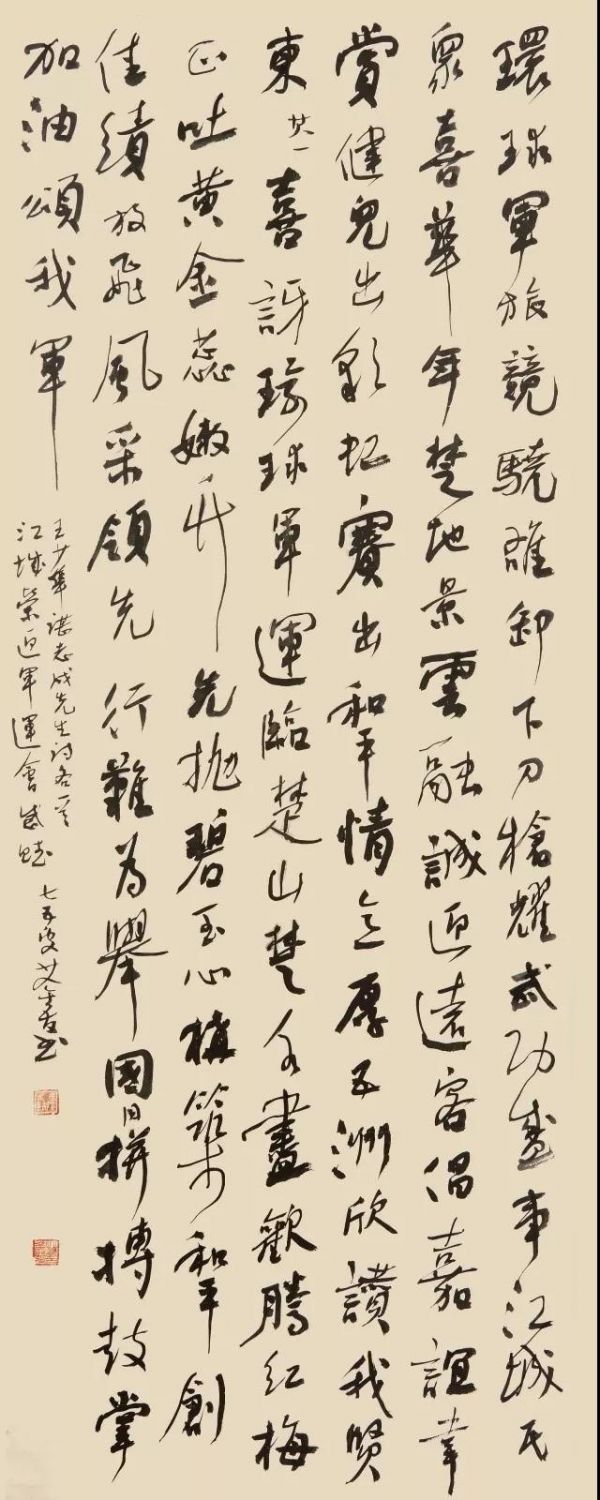 環球軍旅競驍雄卸下刀槍耀武功盛事江城民
眾喜華年楚地景雲融誠迎遠客倡嘉誼幸
賞健兒出彩虹賽出和平情意厚五洲欣讚我賢
東 其一 喜訝環球軍運臨楚山楚水盡歡騰紅梅
正吐黃金蕊嫩竹先拋碧玉心構築和平創
佳績放飛風采領先行難為舉國同拼搏鼓掌
加油頌我軍
王少華諶志成先生詩各一首
江城榮迎軍運會感賦 七五叟艾書